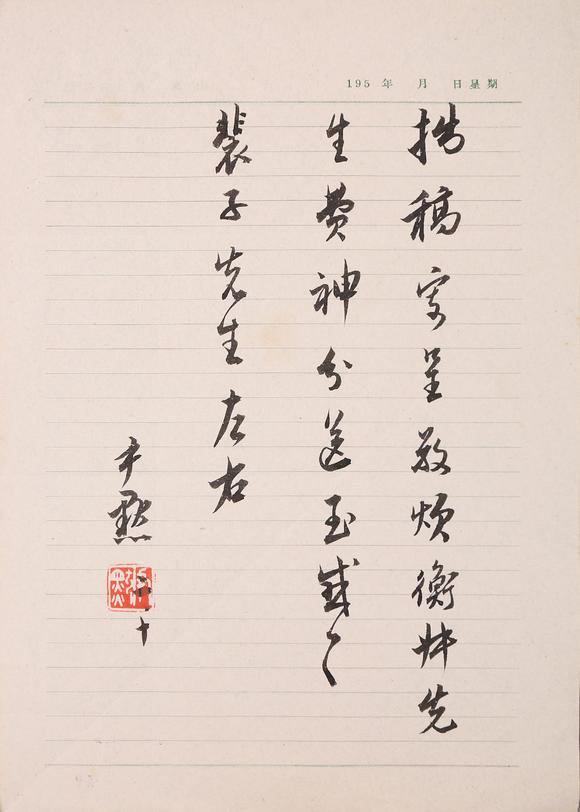 195 年 月 日星期
拙稿寄呈敬煩衡叔先
生費神分送至感〻
裴子先生左右
尹默
十